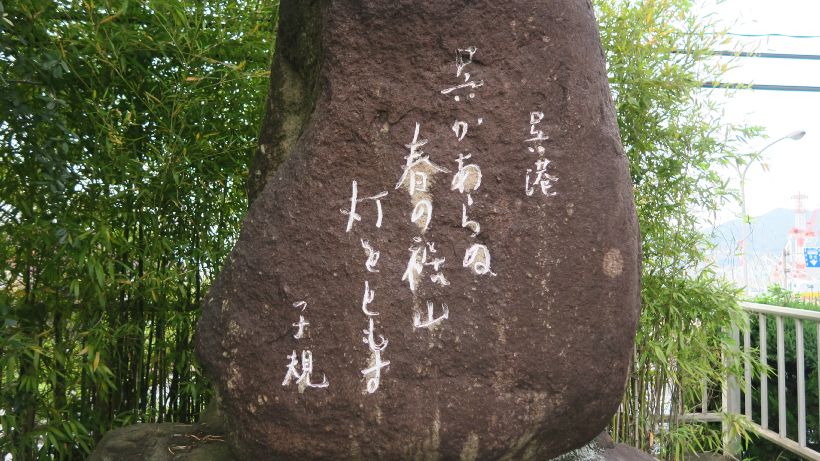 呉港
呉かあらぬ
春の裾山
灯をともす
子規